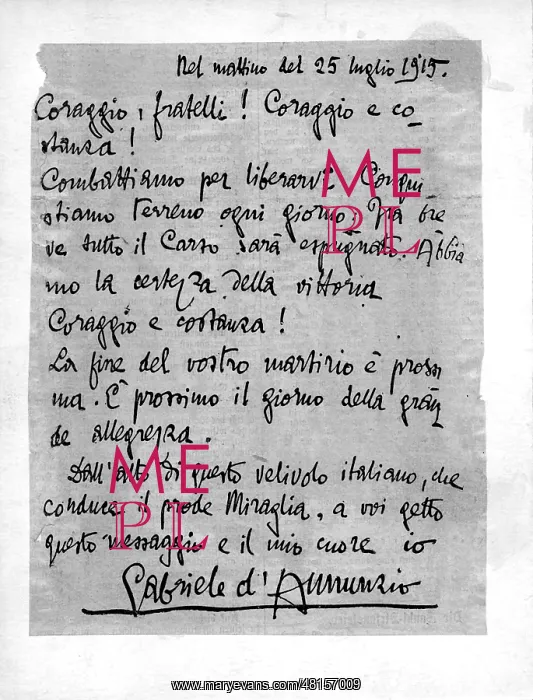 Nel mattino del 25 luglio 1915.
Coraggio, fratelli! Coraggio e co_
stanza!
Combattiamo per liberarvi. Conqui_
stiamo terreno ogni giorno. Fra bre
ve tutto il Carso sarà espugnato. Abbia
mo la certezza della vittoria
Coraggio e costanza!
La fine del vostro martirio è prossi
ma. È prossimo il giorno della gran
de allegrezza.
Dall'alto di questo velivolo italiano, che
conduce il prode Miraglia, a voi getto
questo messaggio e il mio cuore io
Gabriele d'Annunzio
ME
PL
ME
PL
www.maryevans.com/48157009